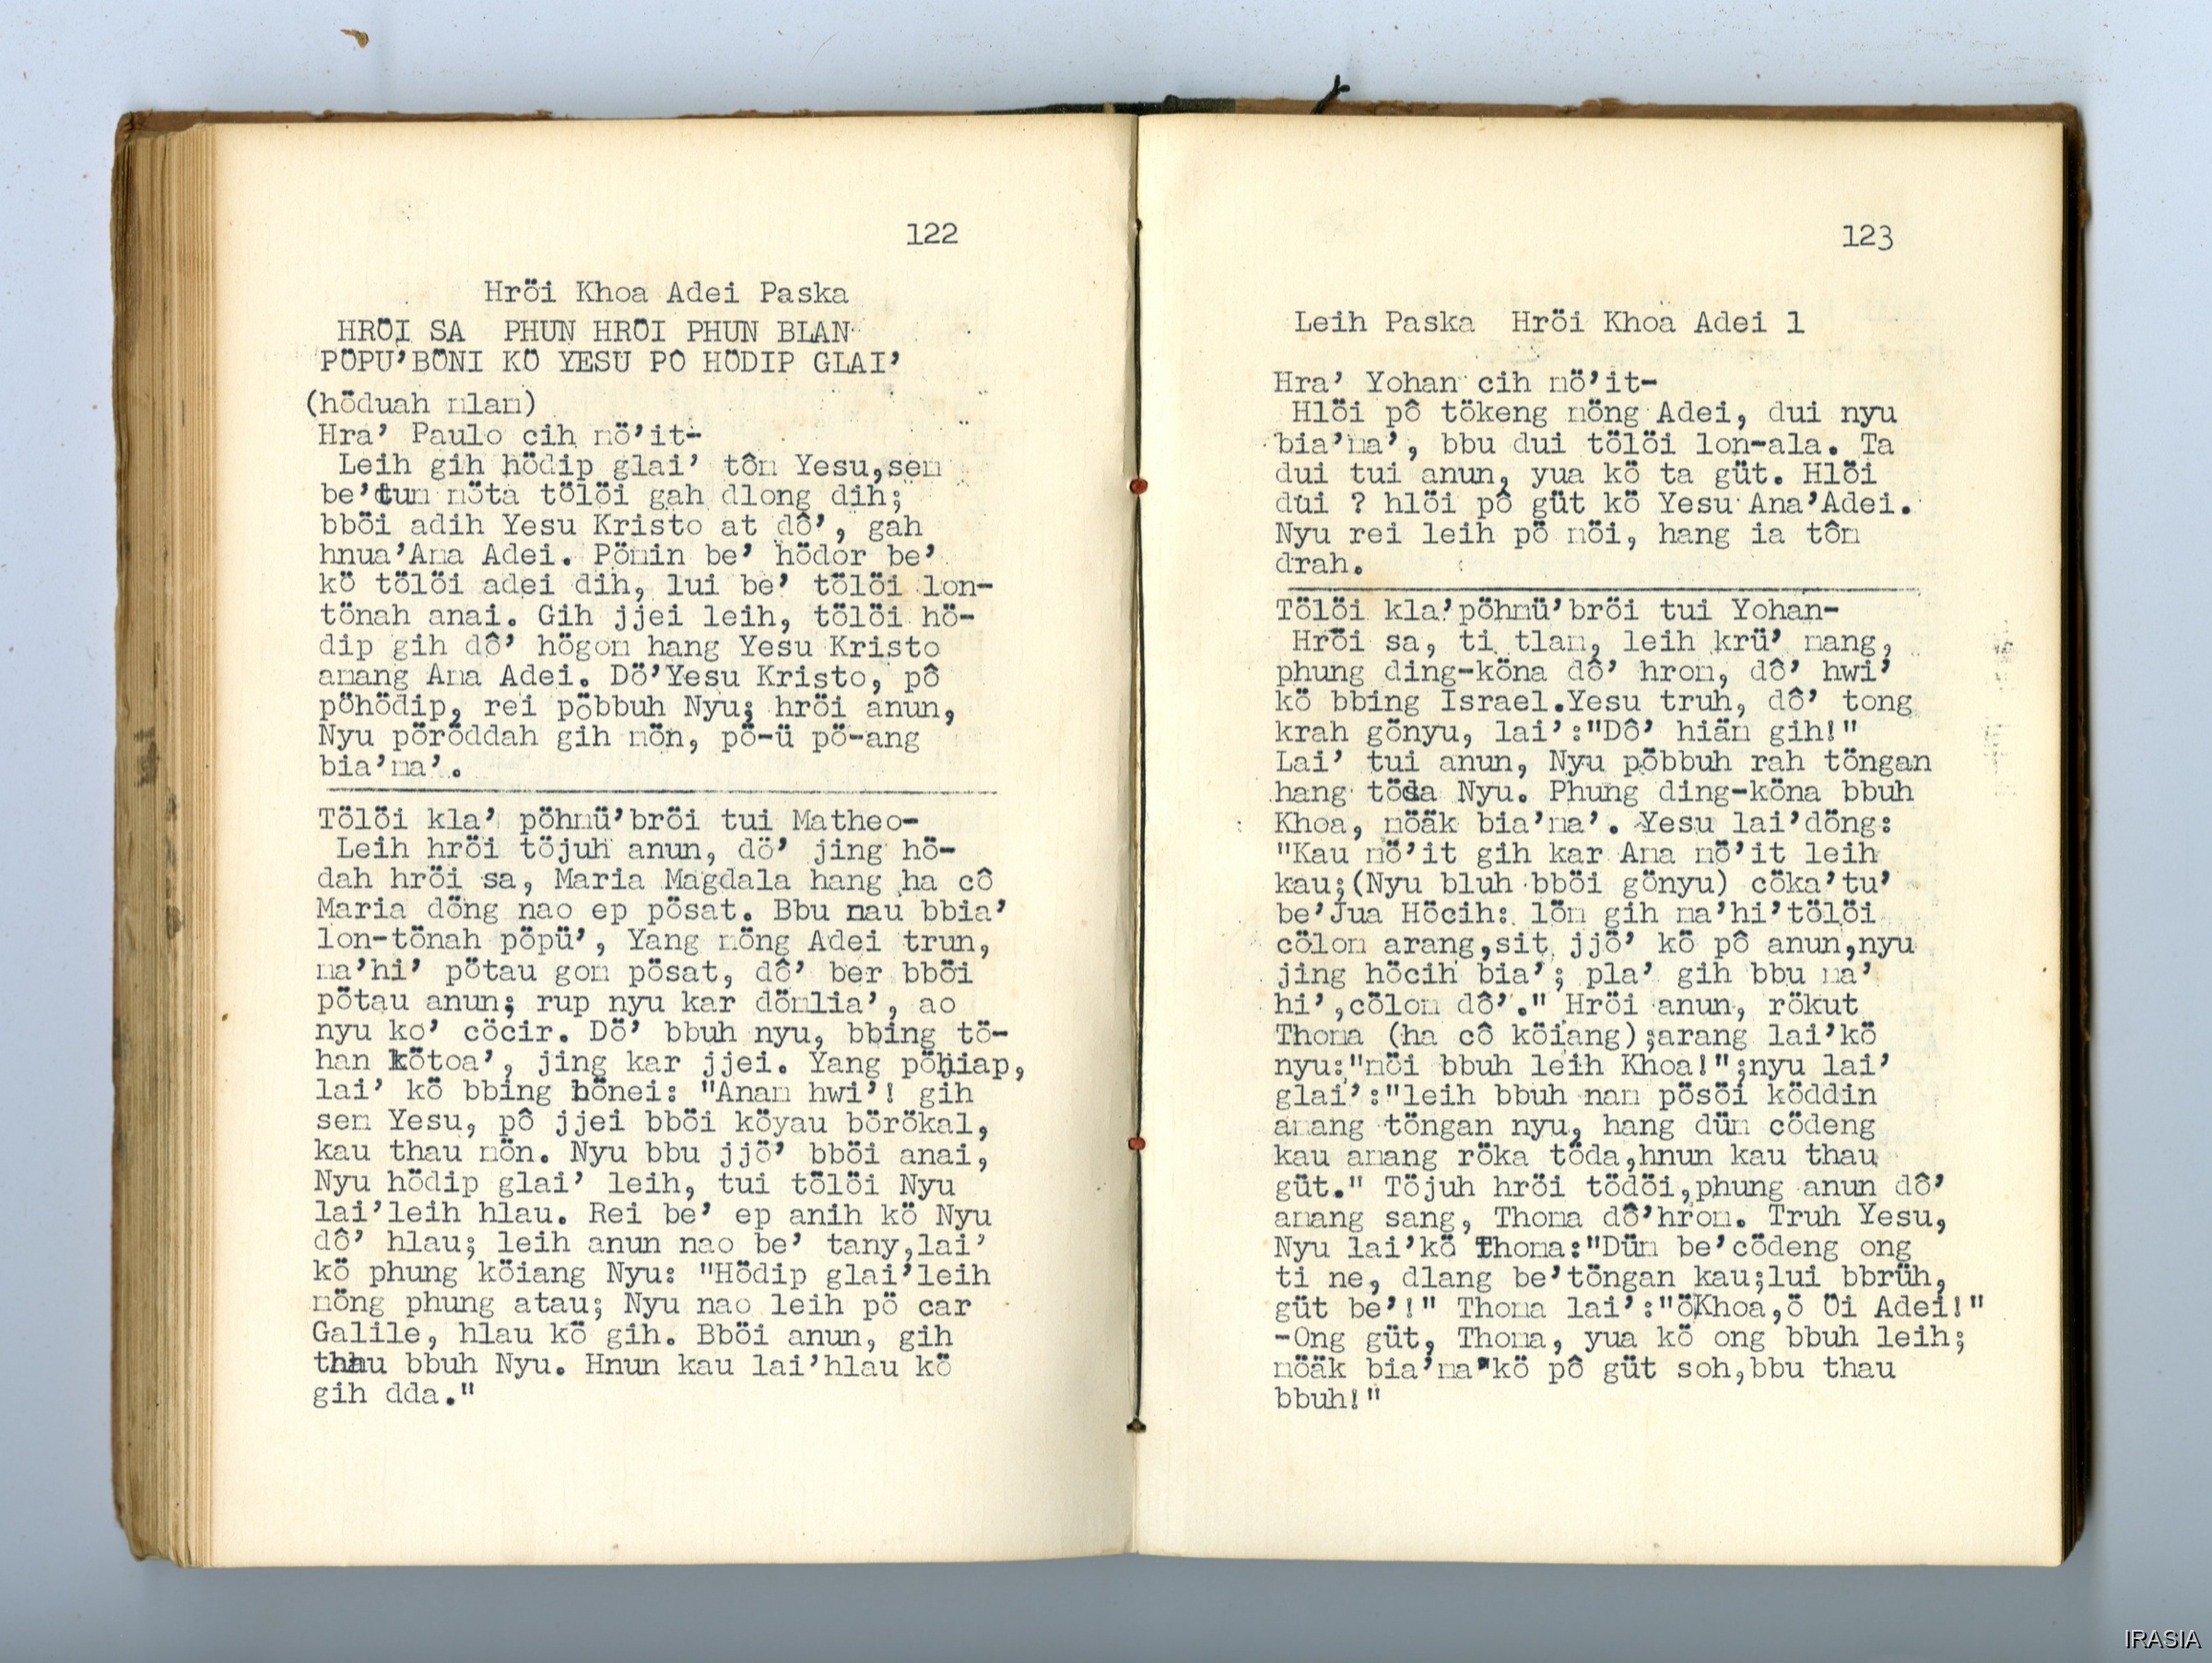 122
Hröi Khoa Adei Paska
HRÖI SA PHUN HRÖI PHUN BLAN
PÖPU’BÖNI KÖ YESU PÔ HÖDIP GLAI’
(höduah mlam)
Hra’ Paulo cih mö’it-
Leih gih hödip glai’ tôm Yesu,sem
be’tum möta tölöi gah dlong dih;
bböi adih Yesu Kristo at dô’, gah
hnua’Ama Adei. Pömin be’ hödor be’
kö tölöi adei dih, lui be’ tölöi lon-
tönah anai. Gih jjei leih, tölöi hö-
dip gih dô’ högom hang Yesu Kristo
amang Ama Adei. Dö’Yesu Kristo, pô
pöhödip, rei pöbbuh Nyu; hröi anun,
Nyu pöröddah gih mön, pö-ü pö-ang
bia’ma’.
Tölöi kla’ pöhmü’bröi tui Matheo-
Leih hröi töjuh anun, dö’ jing hö-
dah hröi sa, Maria Magdala hang ha cô
Maria döng nao ep pösat. Bbu mau bbia’
lon-tönah pöpü’, Yang möng Adei trun,
ma’hi’ pötau gom pösat, dô’ ber bböi
pötau anun; rup nyu kar dömlia’, ao
nyu ko’ cöcir. Dö’ bbuh nyu, bbing tö-
han kötoa’, jing kar jjei. Yang pöhiap,
lai’ kö bbing bönei: "Anam hwi’! gih
sem Yesu, pô jjei bböi köyau börökal,
kau thau mön. Nyu bbu jjö’ bböi anai,
Nyu hödip glai’ leih, tui tölöi Nyu
lai’leih hlau. Rei be’ ep anih kö Nyu
dô’ hlau; leih anun nao be’ tany,lai’
kö phung köiang Nyu: "Hödip glai’leih
möng phung atau; Nyu nao leih pö car
Galile, hlau kö gih. Bböi anun, gih
thau bbuh Nyu. Hnun kau lai’hlau kö
gih dda."
123
Leih Paska Hröi Khoa Adei 1
Hra’ Yohan cih mö’it-
Hlöi pô tökeng möng Adei, dui nyu
bia’ma’, bbu dui tölöi lon-ala. Ta
dui tui anun, yua kö ta güt. Hlöi
dui ? hlöi pô güt kö Yesu Ana’Adei.
Nyu rei leih pö möi, hang ia tôm
drah.
Tölöi kla’pöhmü’bröi tui Yohan-
Hröi sa, ti tlam, leih krü’ mang,
phung ding-köna dô’ hrom, dô’ hwi’
kö bbing Israel.Yesu truh, dô’ tong
krah gönyu, lai’:"Dô’ hiäm gih!"
Lai’ tui anun, Nyu pöbbuh rah töngan
hang töda Nyu. Phung ding-köna bbuh
Khoa, möäk bia’ma’. Yesu lai’döng:
"Kau mö’it gih kar Ama mö’it leih
kau;(Nyu bluh bböi gönyu) cöka’tu’
be’Jua Höcih: löm gih ma’hi’tölöi
cölom arang,sit jjö’ kö pô anun,nyu
jing höcih bia’; pla’ gih bbu ma’
hi’,cölom dô’." Hröi anun, rökut
Thoma (ha cô köiang);arang lai’kö
nyu:"möi bbuh leih Khoa!";nyu lai’
glai’:"leih bbuh mam pösöi köddin
amang töngan nyu, hang düm cödeng
kau amang röka töda,hnun kau thau
güt." Töjuh hröi tödöi,phung anun dô’
amang sang, Thoma dô’hrom. Truh Yesu,
Nyu lai’kö Thoma:"Düm be’cödeng ong
ti ne, dlang be’töngan kau;lui bbrüh,
güt be’!" Thoma lai’:"ö Khoa,ö Öi Adei!"
-Ong güt, Thoma, yua kö ong bbuh leih;
möäk bia’ma’kö pô güt soh,bbu thau
bbuh!"
IRASIA